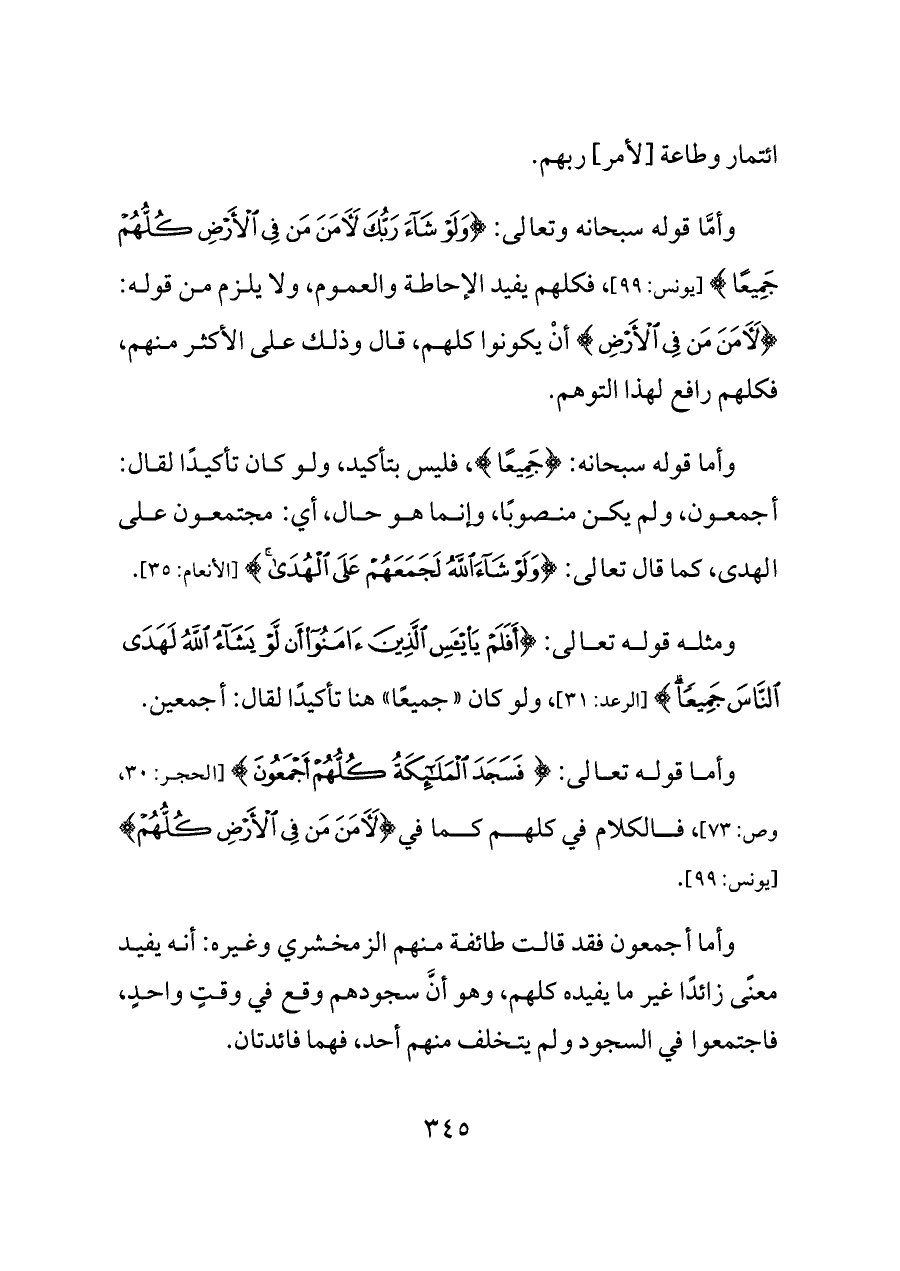 ائتمار وطاعة [لأمر] ربهم.
وأمَّا قوله سبحانه وتعالى: ﴿وَلَوْ شَآءَ رَبُّكَ لَأٓمَنَ مَن فِى ٱلْأَرْضِ كُلُّهُمْ
جَمِيعًا ﴾ [يونس: ٩٩]، فكلهم يفيد الإحاطة والعموم، ولا يلزم من قوله:
﴿لَأٓمَنَ مَن فِى ٱلْأَرْضِ ﴾ أنْ يكونوا كلهم، قال وذلك على الأكثر منهم،
فكلهم رافع لهذا التوهم.
وأما قوله سبحانه: ﴿جَمِيعًا ﴾، فليس بتأكيد، ولو كان تأكيدًا لقال:
أجمعون، ولم يكن منصوبًا، وإنما هو حال، أي: مجتمعون على
الهدى، كما قال تعالى: ﴿وَلَوْ شَآءَ ٱللَّهُ لَجَمَعَهُمْ عَلَى ٱلْهُدَىٰ ۚ ﴾ [الأنعام: ٣٥].
ومثله قوله تعالى: ﴿أَفَلَمْ يَا۟يْـَٔسِ ٱلَّذِينَ ءَامَنُوٓا۟ أَن لَّوْ يَشَآءُ ٱللَّهُ لَهَدَى
ٱلنَّاسَ جَمِيعًا ۗ ﴾ [الرعد: ٣١]، ولو كان «جميعًا» هنا تأكيدًا لقال: أجمعين.
وأما قوله تعالى: ﴿ فَسَجَدَ ٱلْمَلَـٰٓئِكَةُ كُلُّهُمْ أَجْمَعُونَ ﴾ [الحجر: ٣٠،
وص: ٧٣]، فالكلام في كلهم كما في ﴿لَأٓمَنَ مَن فِى ٱلْأَرْضِ كُلُّهُمْ﴾
[يونس: ٩٩].
وأما أجمعون فقد قالت طائفة منهم الزمخشري وغيره: أنه يفيد
معنًى زائدًا غير ما يفيده كلهم، وهو أنَّ سجودهم وقع في وقتٍ واحدٍ،
فاجتمعوا في السجود ولم يتخلف منهم أحد، فهما فائدتان.
٣٤٥